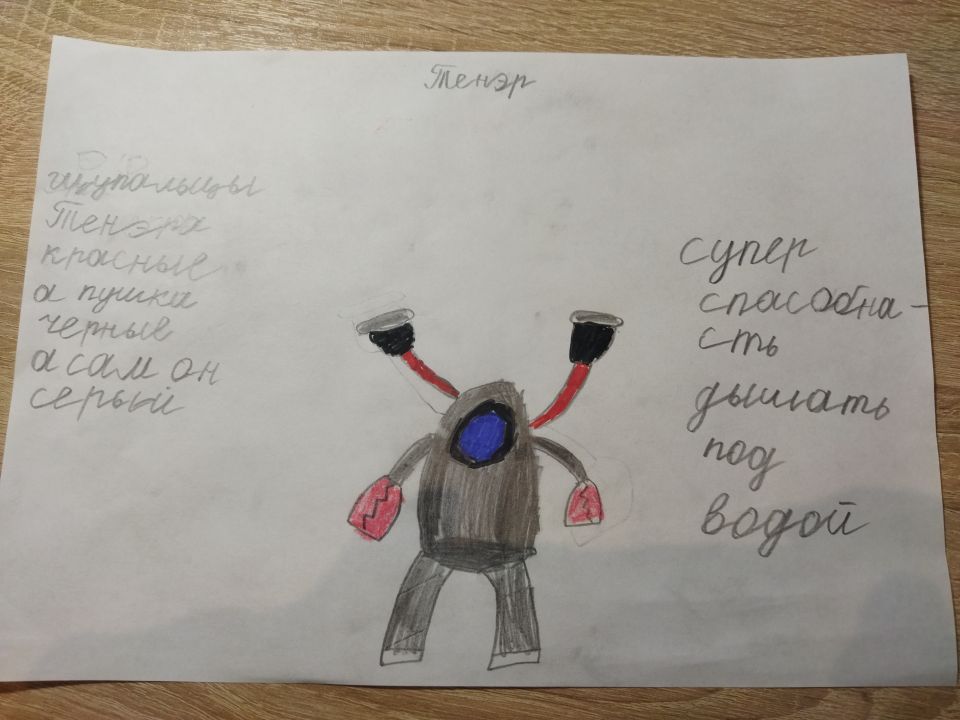 Тенэр
щупальцы
Тенэра
красные
а пушки
черные
а сам он
серый
супер
способна-
сть
дышать
под
водой